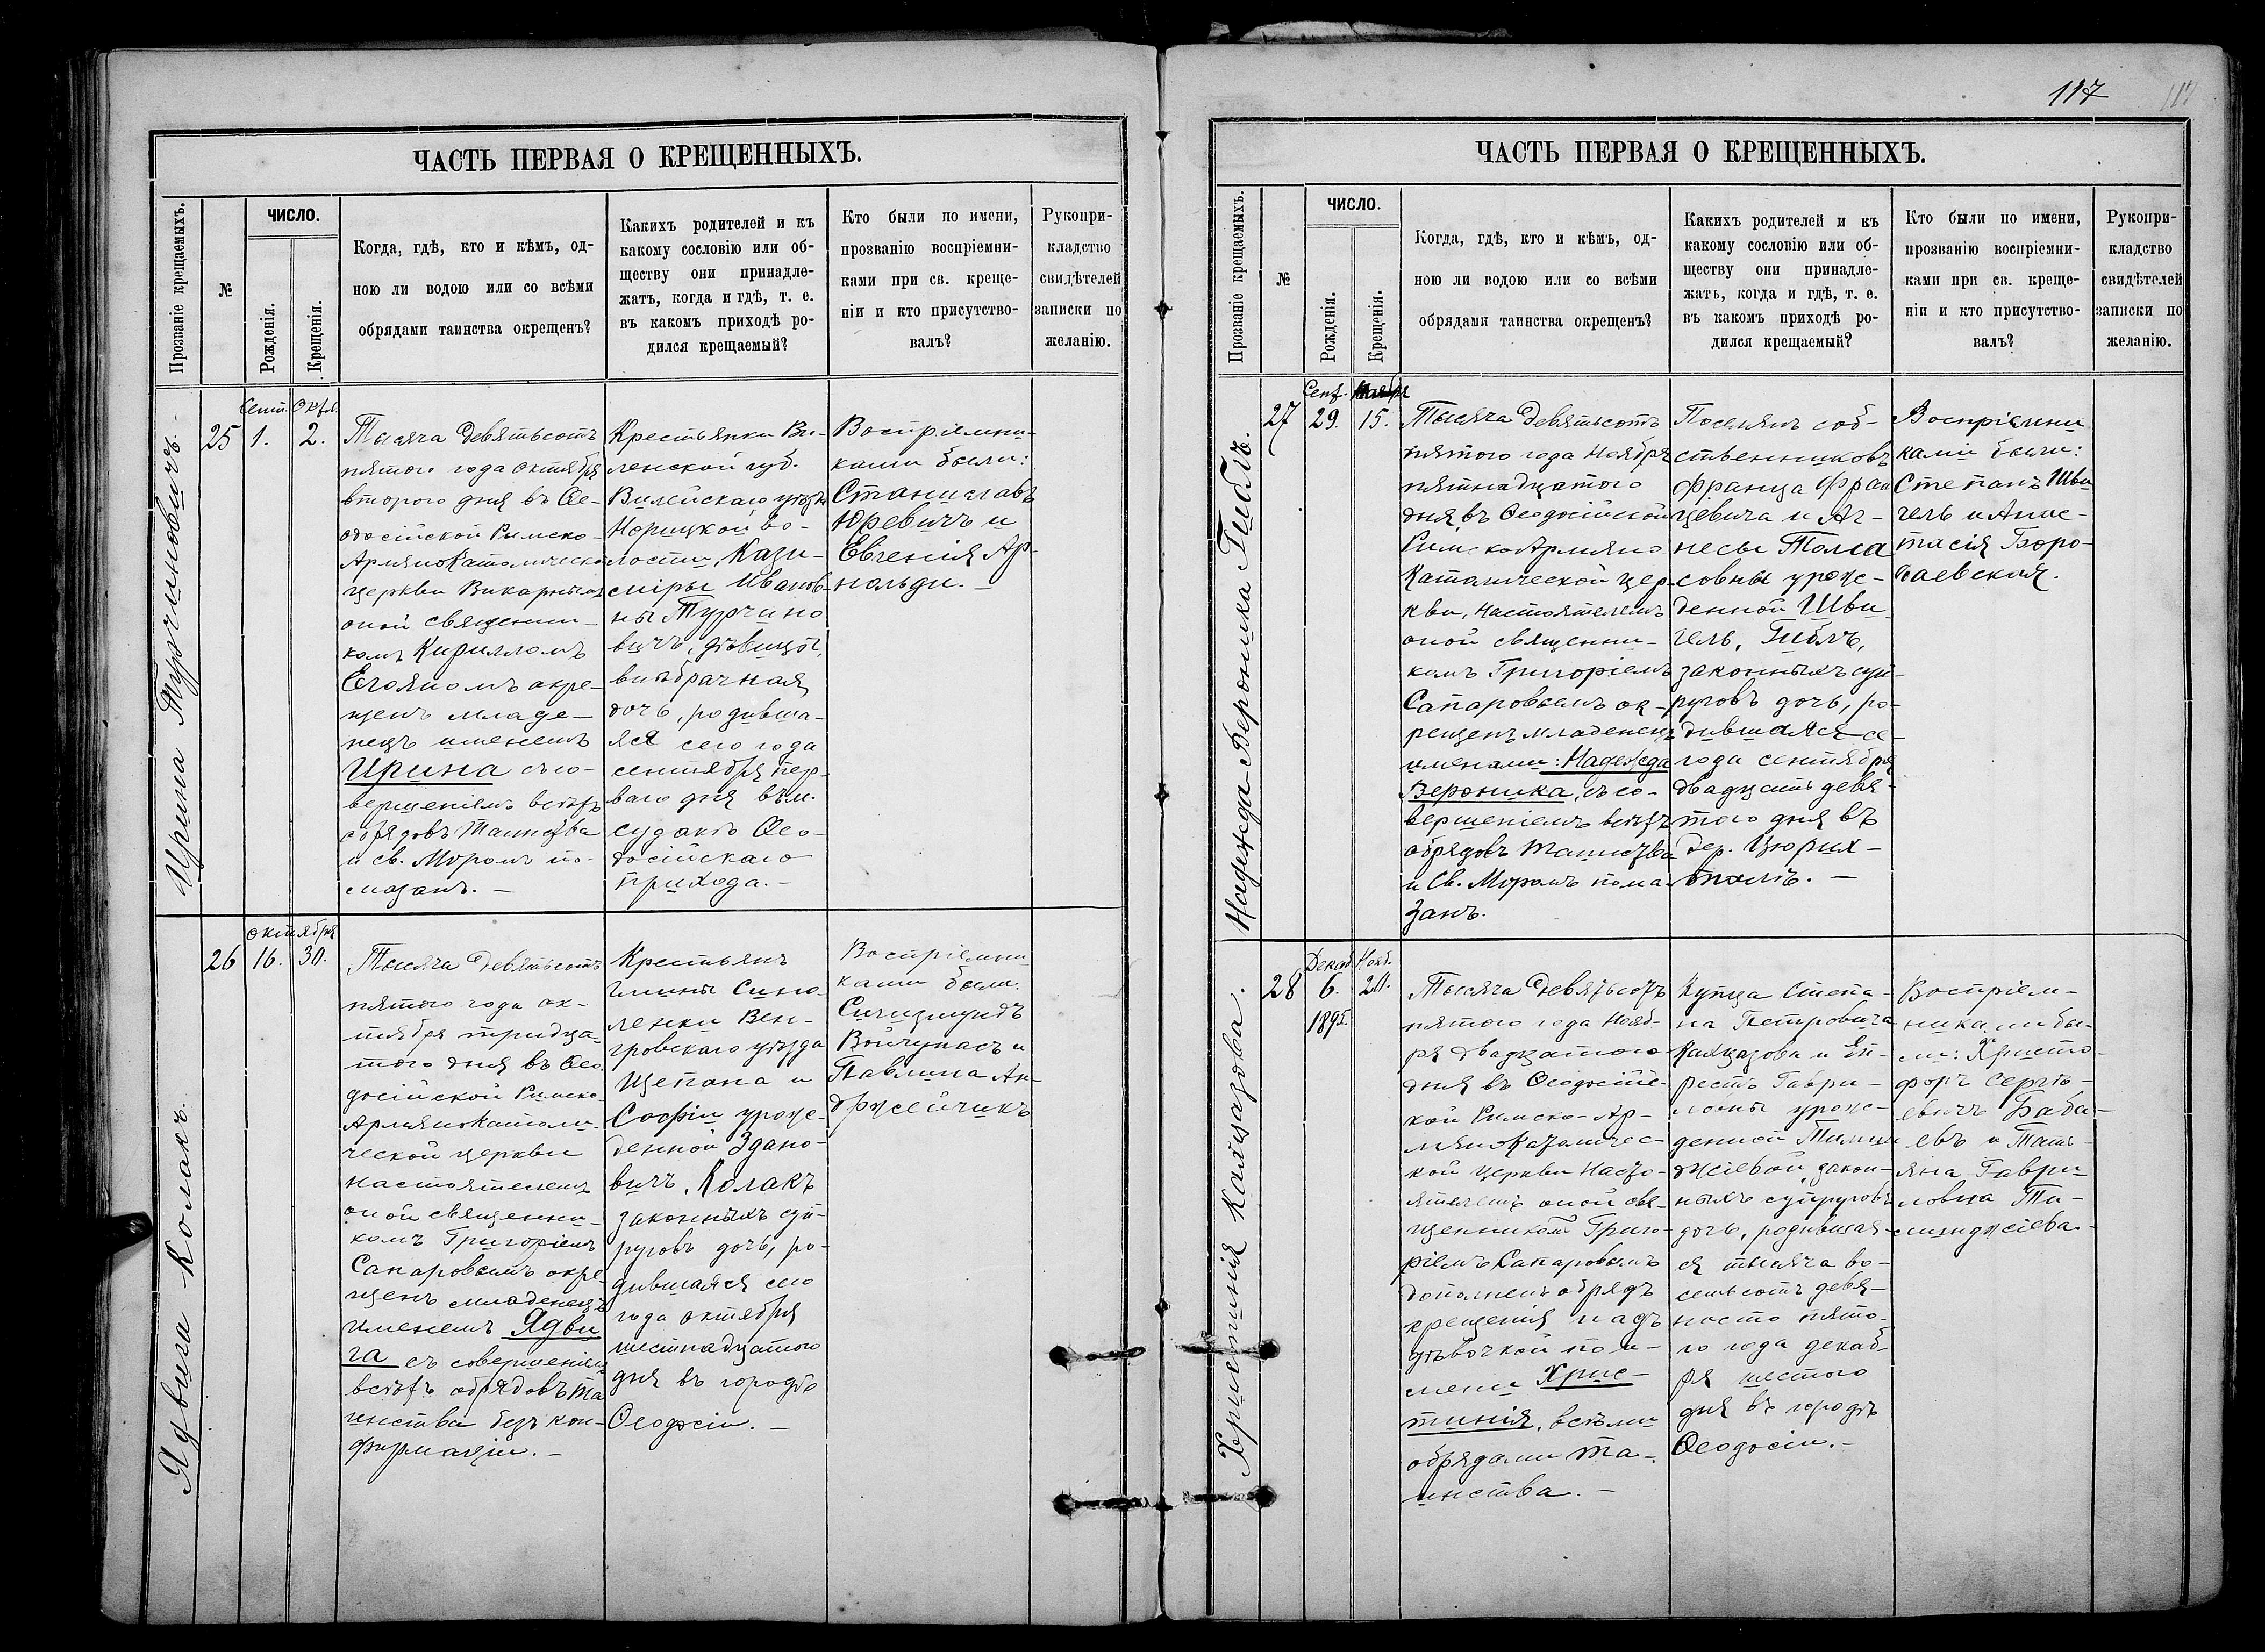 ЧАСТЬ ПЕРВАЯ О КРЕЩЕННЫХЪ.
Прозваніе крещаемыхъ.
№
ЧИСЛО.
Рожденія.
Крещенія.
Когда, гдѣ, кто и кѣмъ, од-
ною ли водою или со всѣми
обрядами таинства окрещенъ?
Какихъ родителей и къ
какому сословію или об-
ществу они принадле-
жатъ, когда и гдѣ, т. е.
въ какомъ приходѣ ро-
дился крещаемый?
Кто были по имени,
прозванію воспріемни-
ками при св. креще-
ніи и кто присутство-
валъ?
Рукопри-
кладство
свидѣтелей
записки по
желанію.
Ирина Турчиновичъ.-
25
Сент.
1.
Окт.
2.
Тысяча девятьсотъ
пятого года октября
второго дня въ Ѳе-
одосійской Римско-
Армянокатолической
церкви Викарнымъ
оной священни-
комъ Кирилломъ
окре-
щенъ младе-
нецъ именемъ
Ирина съ со-
вершеніемъ всѣхъ
обрядовъ Таинства
и св. Мѵромъ по-
мазанъ. -
Крестьянки Ви-
ленской губ.
Вилейскаго уѣзда
во-
лости, Кази-
міры Иванов-
ны Турчино
вичъ, дѣвицы,
внѣбрачная
дочь, родивша-
яся сего года
сентября пер-
ваго дня въ м.
Судакъ Ѳео-
досійскаго
прихода. -
Воспріемни-
ками были:
Станиславъ
Юревичъ и
Евгенія Ар-
нольди. -
Ядвига Колакъ.
26
октября
16.
30.
Тысяча девятьсотъ
пятого года ок-
тября тридца-
таго дня въ Ѳео
досійской Римско-
Армянокатоли-
ческой церкви
настоятелемъ
оной священни-
комъ Григоріемъ
Сапаровымъ окре-
щенъ младенецъ
именемъ Ядви
га съ совершеніемъ
всѣхъ обрядовъ та
инства безъ кон-
фирмаціи. -
Крестьянъ
гмины Сино-
ленки Вен-
гровскаго уѣзда
Щепана и
Софіи урож-
денной Здано-
вичъ, Колакъ
законныхъ суп-
руговъ дочь, ро-
дившаяся сего
года октября
шестнадцатого
дня въ городѣ
Ѳеодосіи. -
Воспріемни
ками были:
Сигизмундъ
Войчунасъ и
Павлина Ан-
држейчикъ
117
ЧАСТЬ ПЕРВАЯ О КРЕЩЕННЫХЪ.
Прозваніе крещаемыхъ.
№
ЧИСЛО.
Рожденія.
Крещенія.
Когда, гдѣ, кто и кѣмъ, од-
ною ли водою или со всѣми
обрядами таинства окрещенъ?
Какихъ родителей и къ
какому сословію или об-
ществу они принадле-
жатъ, когда и гдѣ, т. е.
въ какомъ приходѣ ро-
дился крещаемый?
Кто были по имени,
прозванію воспріемни-
ками при св. креще-
ніи и кто присутство-
валъ?
Рукопри-
кладство
свидѣтелей
записки по
желанію.
Надежда-Вероника Гиблъ.
27
Сент.
29.
Ноября
15.
Тысяча девятьсотъ
пятого года Ноября
пятнадцатого
дня въ Ѳеодосійской
Римско Армяно
Католической цер-
кви, настоятелемъ
оной священни-
комъ Григоріемъ
Сапаровымъ ок-
рещенъ младенецъ
именами: Надежда
Вероника, съ со-
вершеніемъ всѣхъ
обрядовъ таинства
и Св. Мѵромъ пома-
занъ.
Поселянъ соб-
ственниковъ
Франца Фран
цевича и Аг-
несы
совны урож-
денной Шви
гель, Гиблъ,
законныхъ суп-
руговъ дочь, ро-
дившаяся се-
года сентября
двадцать девя-
того дня въ
дер. Цюрих-
талѣ. -
Воспріемни
ками были:
Степанъ Шви
гель и Анас-
тасія Боро-
даевская.
Христинія Калцазова.
28
Декаб.
6.
1895.
Нояб.
20.
Тысяча девятьсотъ
пятого года Нояб-
ря двадцатого
дня въ Ѳеодосійс-
кой Римско-Ар-
мянокатоличес-
кой церкви Насто-
ятелемъ оной свя-
щенникомъ Григо-
ріемъ Сапаровымъ
дополненъ обрядъ
крещенія надъ
дѣвочкой по и-
мени Хрис-
тинія, всѣми
обрядами та-
инства. -
Купца Степа-
на Петровича
Калцазова и
Гаври-
ловны урож-
денной
закон-
ныхъ супруговъ
дочь, родившая-
ся тысяча во-
семьсотъ девя-
носто пято-
го года декаб-
ря шестого
дня въ городѣ
Ѳеодосіи. -
Воспріем-
никами бы-
ли: Христо-
форъ Сергѣ-
евичъ Баба-
евъ и Тать-
яна Гаври
ловна Ти-